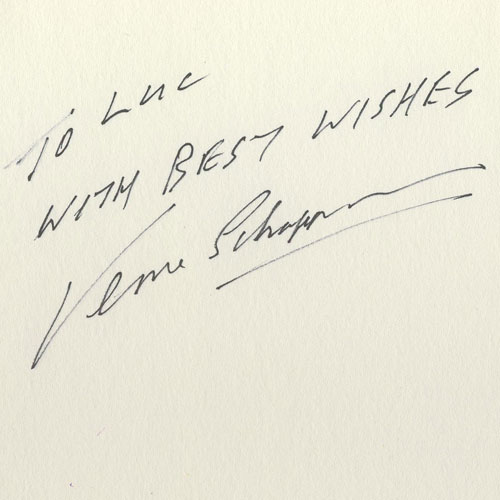 TO LUC
WITH BEST WISHES
Verne